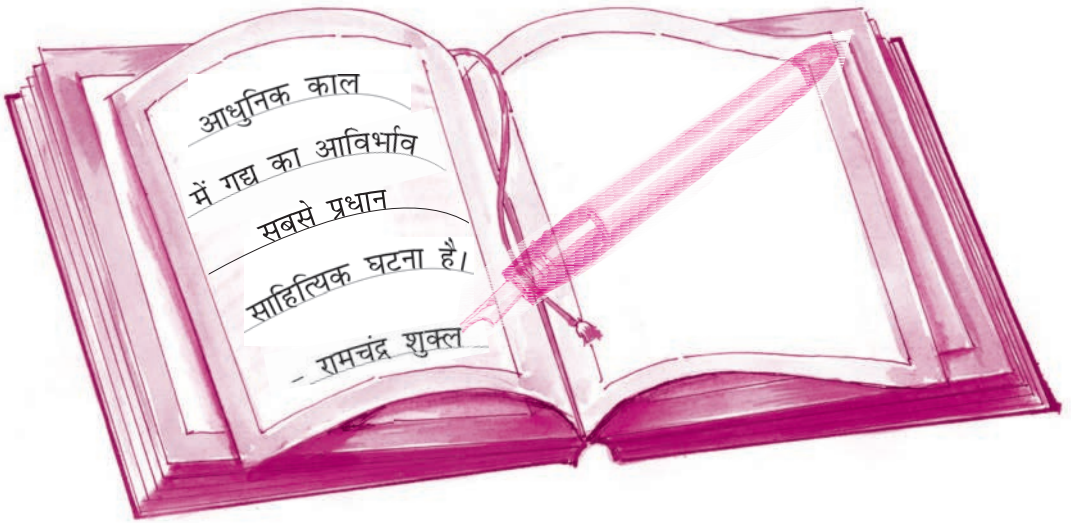 आधुनिक काल
में गद्य का आविर्भाव
सबसे प्रधान
साहित्यिक घटना है।
- रामचंद्र शुक्ल